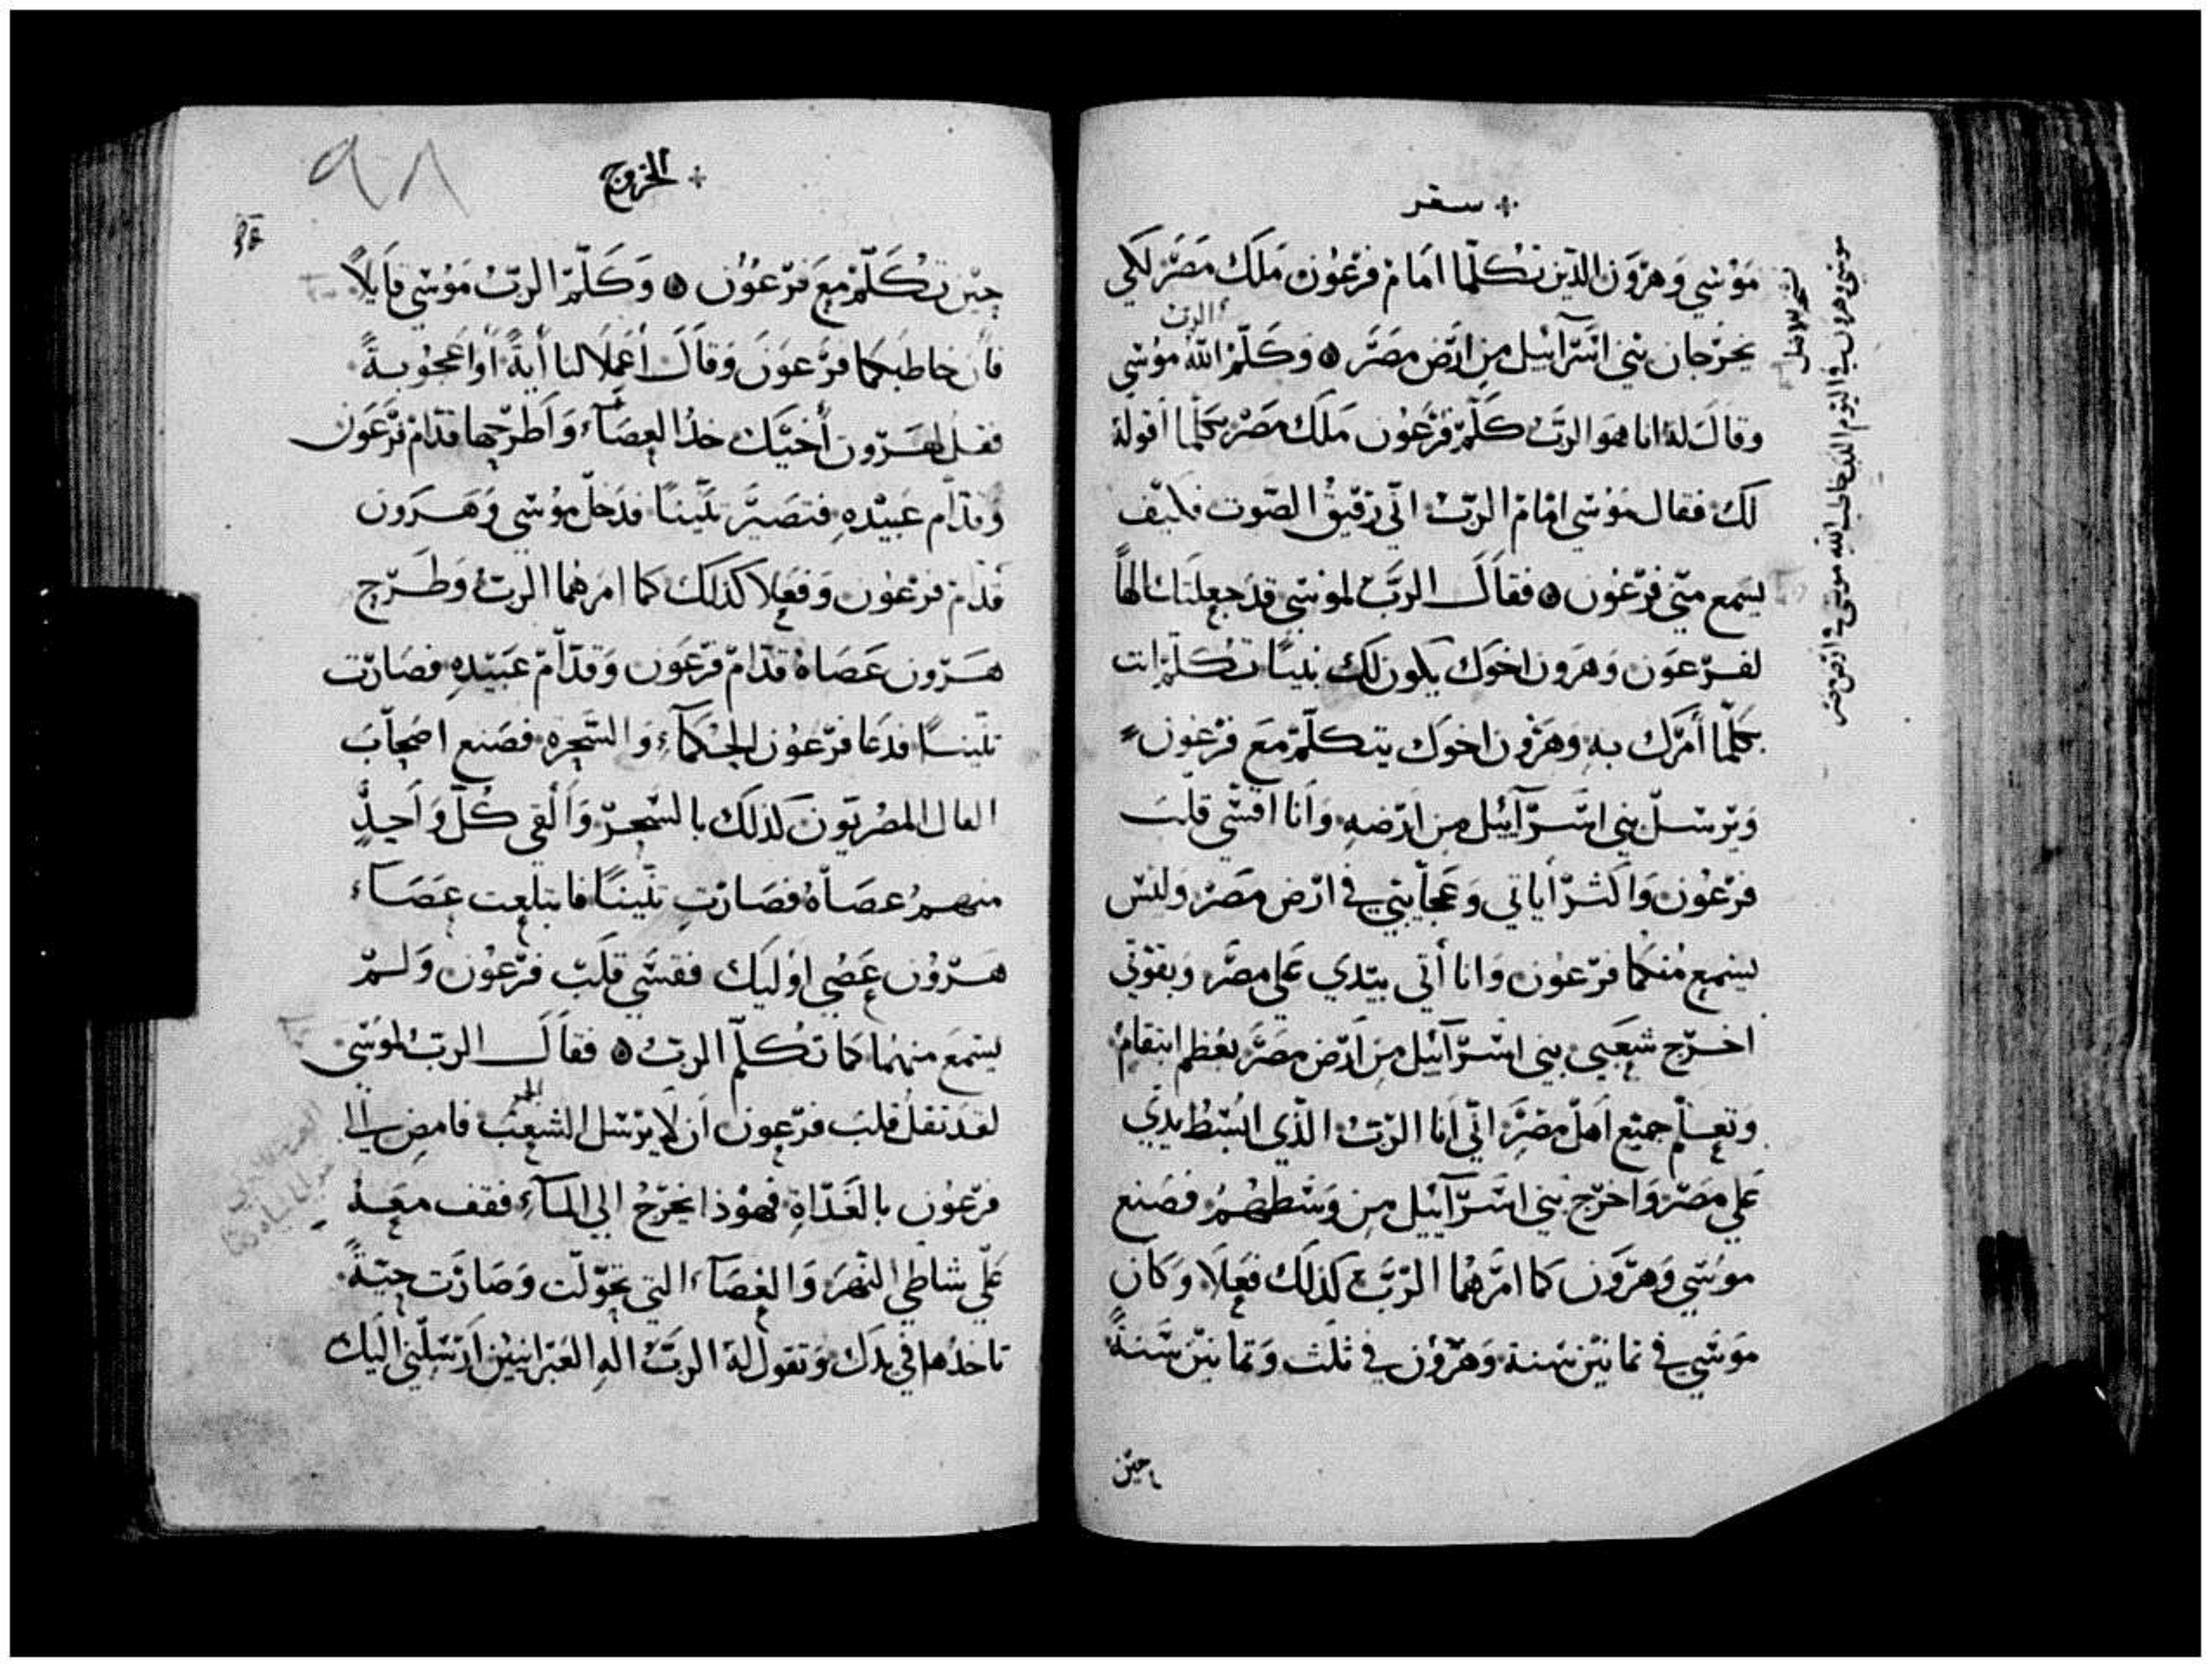 سفر
مَوُسَي وَهَرَوَن الذَيْن تكلَّما امَامَ فرْعُون مَلَك مَصَر لكَي
الرب
يخرَجان بَني اسْرَآئيل مِن ارَض مَصَر ۞ وَكلَّمَ اللّه موُسَي
وقالَ لهُ انا هوَ الربَ كلّمَ فَرْعُون مَلَك مَصَرْ بكلّما اقوله
لك فقال مَوُسَي امَام الربَ انّي رَقيقُ الصَوت فكيف
يسَمع منّي فرْعُون ۞ فقاَلَ الربّ لموُسَي قدَ جعلتَك الهاً
لفرْعَون وَهَرون اخوَك يكون لك نبياً تتكلمَ انت
بكلّما أمرَك به وَهَرَون اخوَك يتكلّمَ معَ فرْعُون
وَيْرسَلّ بني اسَرَآئيل مِن ارْضه وَأنا اقسّي قلبَ
فرْعُون وَاكثرَ أياتي وَعجايَبي في ارْض مصَر وَليْسَ
يسَمع مُنكما فرْعُون وَانا أتي بيَدي عَلي مصَر وَبقوَتي
اخرَج شعبَي بني اسَرَآئيل مِن ارَض مصَر بعُظم انتقام
وَتعلم جميع اهَل مصَر انّي أنا الربَ الذّي ابسُط يدَي
عَلي مصَر وَاخرَج بَني اسَرَآئيل مِن وَسَطهُمُ فصَنع
موُسَي وَهَرَون كما امَرَهُما الربَ كذلك فعَلاَ وَكان
موَسَي في ثمانيَن سَنة وَهَرَون في ثلَث وَثمانيَن سَنةً
حيَن
موسي وهرون في اليوم الذي خاطب الله موسي في ارض مصر
الخروج
٩٨
حيْن تكَلّمَ معَ فرْعُوُن ۞ وَكَلّمَ الربَ مَوُسَي قايلاً
فأن خاطبَكما فرْعَون وَقاَلَ أعَملاَ لنا أيةً أوَاعَجُوبةً
فقل لهَرَون أخيَك خذ العصَآء وَاَطرَحها قدَامَ فرَعَون
وَقدّام عَبيْدهِ فتصَيّرَ تنّيناً فدَخل موُسَي وَهَرَون
قدّام فرْعُون وَفعَلا كذلك كما امَرهُما الربَ وَطرَح
هَرَون عَصَاهُ قدّامَ فرْعَون وَقدّام عَبيْدهِ فصَارَت
تنّيناً فدَعَا فرْعُون الحُكمآء وَالسَحرة فصَنع اصَحابَ
الفال المصَريَون كذلك بالسَحرَ وَألقي كُلّ وَاحدٍ
منهمُ عصَاهُ فصَارَت تنّيناً فابتلعت عَصَآء
هَرَوُن عصَي اوُليَك فقسَّي قلَبَ فرَعَوُن وَلمَ
يسَمعَ منهُما كما تكلّمَ الربَ ۞ فقاَلَ الربَ لموُسَي
لقدَ ثقل قلبَ فرَعون اَن لاَ يرَسَل الشعبَ فامض الي
فرَعُون بالغَدَاةِ فهوُذا يخرَجُ الي المآءِ فقف معَهُ
عَلّي شاطي النّهرَ وَالعصَآء التي تحوّلت وَصَارَت حيّةً
تاخذُها في يدَك وَتقول لهُ الربَ الهِ العَبرَانييَن ارَسَلَني اليَك